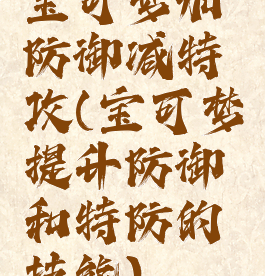 宝可梦加
防御减特
攻(宝可梦
提升防御
和特防的
技能)